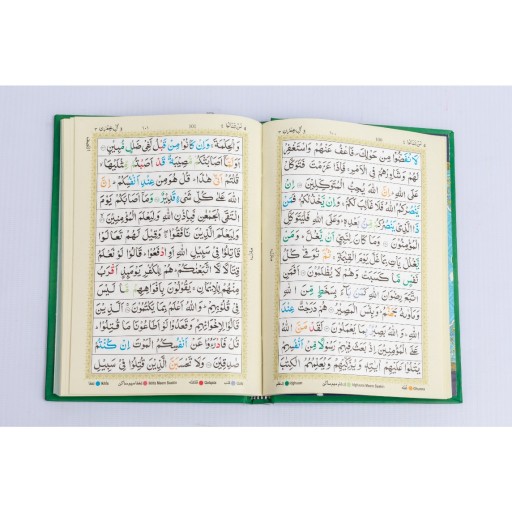 لَانْفَضُّوْا مِنْ حَوْلِكَ فَاعْفُ عَنْهُمْ وَاسْتَغْفِرْ
لَهُمْ وَشَاوِرْهُمْ فِی الْاَمْرِ ۚ فَاِذَا عَزَمْتَ فَتَوَكَّلْ
عَلَی اللّٰهِ ؕ اِنَّ اللّٰهَ یُحِبُّ الْمُتَوَكِّلِیْنَ ۝ اِنْ
یَّنْصُرْكُمُ اللّٰهُ فَلَا غَالِبَ لَكُمْ ۚ وَاِنْ یَّخْذُلْكُمْ فَمَنْ
ذَا الَّذِیْ یَنْصُرُكُمْ مِّنْۢ بَعْدِهٖ ؕ وَعَلَی اللّٰهِ فَلْیَتَوَكَّلِ
الْمُؤْمِنُوْنَ ۝ وَمَا كَانَ لِنَبِیٍّ اَنْ یَّغُلَّ ؕ وَمَنْ
یَّغْلُلْ یَاْتِ بِمَا غَلَّ یَوْمَ الْقِیٰمَةِ ۚ ثُمَّ تُوَفّٰی كُلُّ
نَفْسٍ مَّا كَسَبَتْ وَهُمْ لَا یُظْلَمُوْنَ ۝ اَفَمَنِ
اتَّبَعَ رِضْوَانَ اللّٰهِ كَمَنْۢ بَآءَ بِسَخَطٍ مِّنَ اللّٰهِ
وَمَاْوٰىهُ جَهَنَّمُ ؕ وَبِئْسَ الْمَصِیْرُ ۝ هُمْ دَرَجٰتٌ عِنْدَ
اللّٰهِ ؕ وَاللّٰهُ بَصِیْرٌۢ بِمَا یَعْمَلُوْنَ ۝ لَقَدْ مَنَّ اللّٰهُ
عَلَی الْمُؤْمِنِیْنَ اِذْ بَعَثَ فِیْهِمْ رَسُوْلًا مِّنْ اَنْفُسِهِمْ
یَتْلُوْا عَلَیْهِمْ اٰیٰتِهٖ وَیُزَكِّیْهِمْ وَیُعَلِّمُهُمُ الْكِتٰبَ
وَالْحِكْمَةَ ۚ وَاِنْ كَانُوْا مِنْ قَبْلُ لَفِیْ ضَلٰلٍ مُّبِیْنٍ ۝
اَوَلَمَّآ اَصَابَتْكُمْ مُّصِیْبَةٌ قَدْ اَصَبْتُمْ مِّثْلَیْهَا ۙ
قُلْتُمْ اَنّٰی هٰذَا ؕ قُلْ هُوَ مِنْ عِنْدِ اَنْفُسِكُمْ ؕ اِنَّ
اللّٰهَ عَلٰی كُلِّ شَیْءٍ قَدِیْرٌ ۝ وَمَآ اَصَابَكُمْ یَوْمَ
الْتَقَی الْجَمْعٰنِ فَبِاِذْنِ اللّٰهِ وَلِیَعْلَمَ الْمُؤْمِنِیْنَ ۝
وَلِیَعْلَمَ الَّذِیْنَ نَافَقُوْا ۚ وَقِیْلَ لَهُمْ تَعَالَوْا
قَاتِلُوْا فِیْ سَبِیْلِ اللّٰهِ اَوِ ادْفَعُوْا ؕ قَالُوْا لَوْ نَعْلَمُ
قِتَالًا لَّا اتَّبَعْنٰكُمْ ؕ هُمْ لِلْكُفْرِ یَوْمَئِذٍ اَقْرَبُ
مِنْهُمْ لِلْاِیْمَانِ ۚ یَقُوْلُوْنَ بِاَفْوَاهِهِمْ مَّا لَیْسَ
فِیْ قُلُوْبِهِمْ ؕ وَاللّٰهُ اَعْلَمُ بِمَا یَكْتُمُوْنَ ۝ اَلَّذِیْنَ
قَالُوْا لِاِخْوَانِهِمْ وَقَعَدُوْا لَوْ اَطَاعُوْنَا مَا قُتِلُوْا ؕ
قُلْ فَادْرَءُوْا عَنْ اَنْفُسِكُمُ الْمَوْتَ اِنْ كُنْتُمْ
صٰدِقِیْنَ ۝ وَلَا تَحْسَبَنَّ الَّذِیْنَ قُتِلُوْا فِیْ سَبِیْلِ
Ikhfa
Ikhfa Meem Saakin
Qalqala
Qalb
Idghaam
Idghaam Meem Saakin
Ghunna